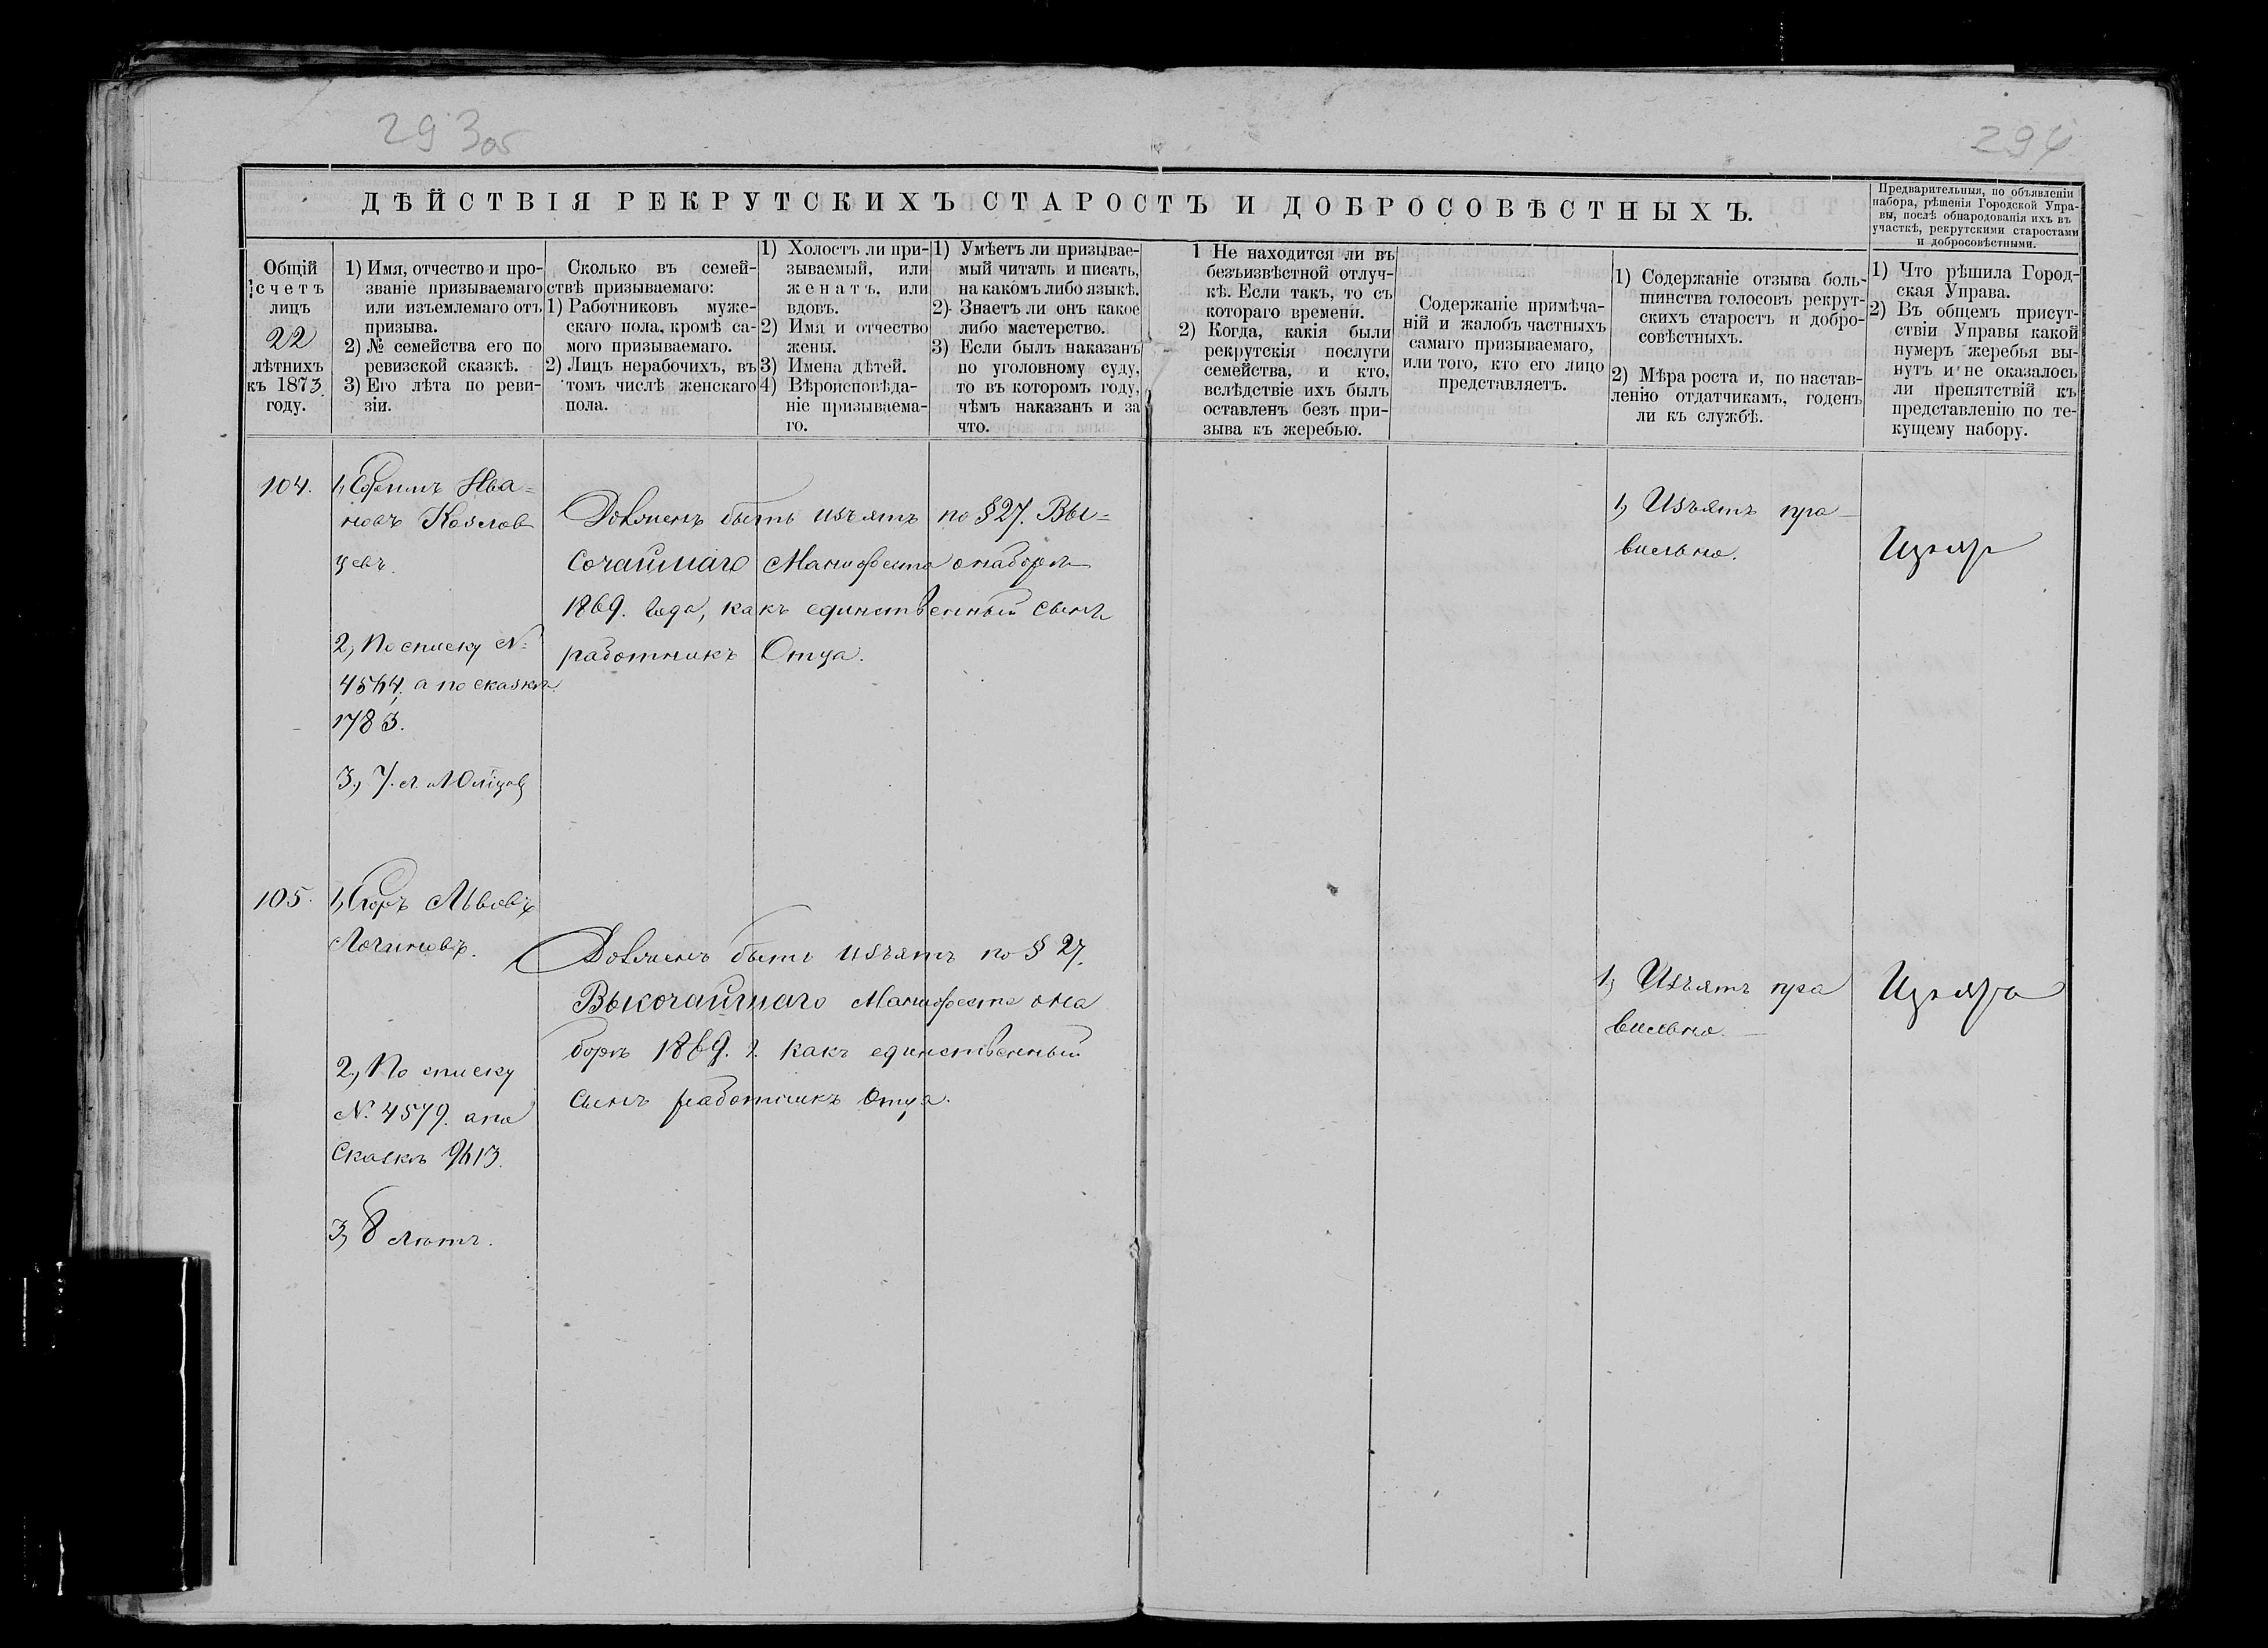 293 об
294
ДѢЙСТВІЯ РЕКРУТСКИХЪ СТАРОСТЪ И ДОБРОСОВѢСТНЫХЪ.
Предварительныя, по объявленіи
набора, рѣшенія Городской Упра-
вы, послѣ обнародованія ихъ въ
участкѣ, рекрутскими старостами
и добросовѣстными.
Общій
счетъ
лицъ
22
лѣтнихъ
къ 1873.
году.
1) Имя, отчество и про-
званіе призываемаго
или изъемлемаго отъ
призыва.
2) № семейства его по
ревизской сказкѣ.
3) Его лѣта по реви-
зіи.
Сколько въ семей-
ствѣ призываемаго:
1) Работниковъ муже-
скаго пола, кромѣ са-
мого призываемаго.
2) Лицъ нерабочихъ, въ
томъ числѣ женскаго
пола.
1) Холостъ ли при-
зываемый, или
женатъ, или
вдовъ.
2) Имя и отчество
жены.
3) Имена дѣтей.
4) Вѣроисповѣда-
ніе призываема-
го.
1) Умѣетъ ли призывае-
мый читать и писать,
на какомъ либо языкѣ.
2) Знаетъ ли онъ какое
либо мастерство.
3) Если былъ наказанъ
по уголовному суду,
то въ которомъ году,
чѣмъ наказанъ и за
что.
1 Не находится ли въ
безъизвѣстной отлуч-
кѣ. Если такъ, то съ
котораго времени.
2) Когда, какія были
рекрутскія послуги
семейства, и кто,
вслѣдствіе ихъ былъ
оставленъ безъ при-
зыва къ жеребью.
Содержаніе примѣча-
ній и жалобъ частныхъ
самаго призываемаго,
или того, кто его лицо
представляетъ.
1) Содержаніе отзыва боль-
шинства голосовъ рекрут-
скихъ старостъ и добро-
совѣстныхъ.
2) Мѣра роста и, по настав-
ленію отдатчикамъ, годенъ
ли къ службѣ.
1) Что рѣшила Город-
ская Управа.
2) Въ общемъ присут-
ствіи Управы какой
нумеръ жеребья вы-
нутъ и не оказалось
ли препятствій къ
представленію по те-
кущему набору.
104.
1, Ефимъ Ива=
новъ Козлов
цевъ.
2, По списку №
4564, а по сказкѣ
1783.
3, 7. л.
Долженъ быть изъятъ по § 27. Вы=
сочайшаго Манифеста о наборѣ
1869. года, какъ единственный сынъ
работникъ Отца.
1, Изъятъ пра-
вильно.
Изъять
105.
1, Егоръ Львовъ
Логиновъ.
2, По списку
№ 4579. а по
Сказкѣ 9613.
3, 8 лѣтъ.
Долженъ быть изъятъ по § 27.
Высочайшаго Манифеста о на
борѣ 1869. г. какъ единственный
сынъ работникъ Отца.
1, Изъятъ пра
вильно.
Изъять